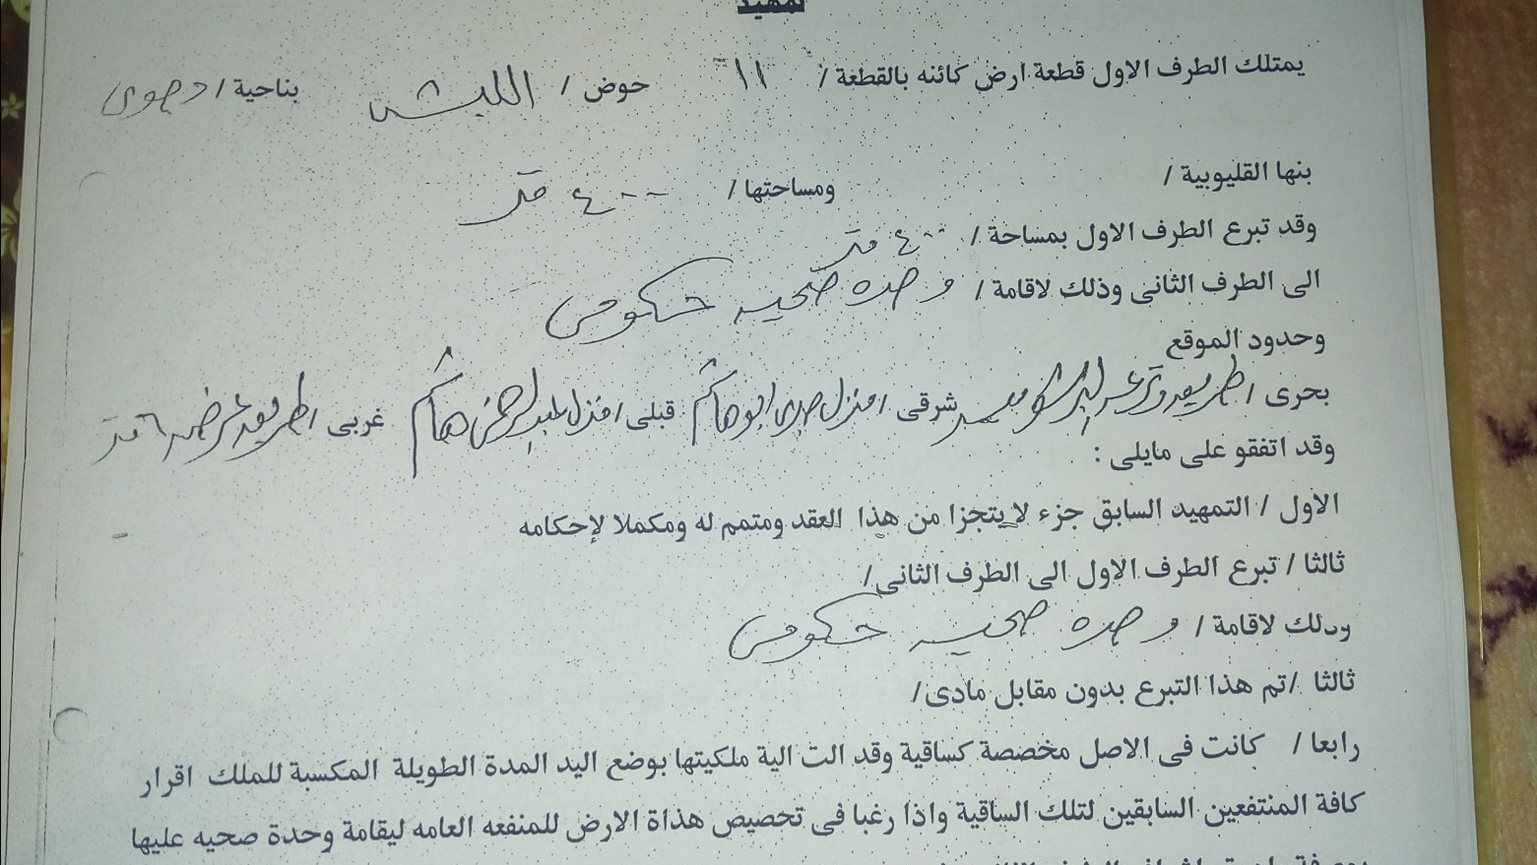 تمهيد
يمتلك الطرف الاول قطعة ارض كائنه بالقطعة / ١١ حوض / الليشى بناحية / دجوى
بنها القليوبية / ومساحتها / ٤٠٠ متر
وقد تبرع الطرف الاول بمساحة / ٤٠٠ متر
الى الطرف الثانى وذلك لاقامة / وحده صحيه حكومى
وحدود الموقع
بحرى / الطريق شرقى / منزل ابو هاشم قبلى / منزل عبد الرحمن هاشم غربى / طريق عرضه ٦ متر
وقد اتفقو على مايلى :
الاول / التمهيد السابق جزء لا يتجزا من هذا العقد ومتمم له ومكملا لإحكامه
ثالثا / تبرع الطرف الاول الى الطرف الثانى/
وذلك لاقامة / وحده صحيه حكومى
ثالثا /تم هذا التبرع بدون مقابل مادى/
رابعا / كانت فى الاصل مخصصة كساقية وقد الت الية ملكيتها بوضع اليد المدة الطويلة المكسبة للملك اقرار
كافة المنتفعين السابقين لتلك الساقية واذا رغبا فى تخصيص هذاة الارض للمنفعه العامه ليقامة وحدة صحيه عليها